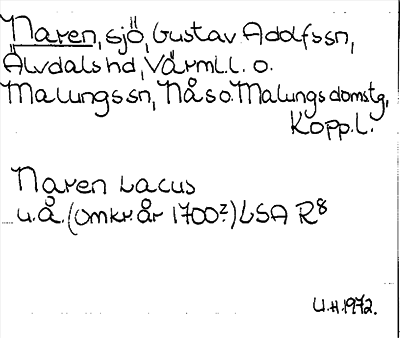 Naren, sjö, Gustav Adolfssn,
Älvdals hd, Värml.l. o.
Malungssn, Nås o. Malungs domstg,
Kopp.l.
Naren Lacus
u.å. (omkr. år 1700?) LSA R8
U.H. 1972.